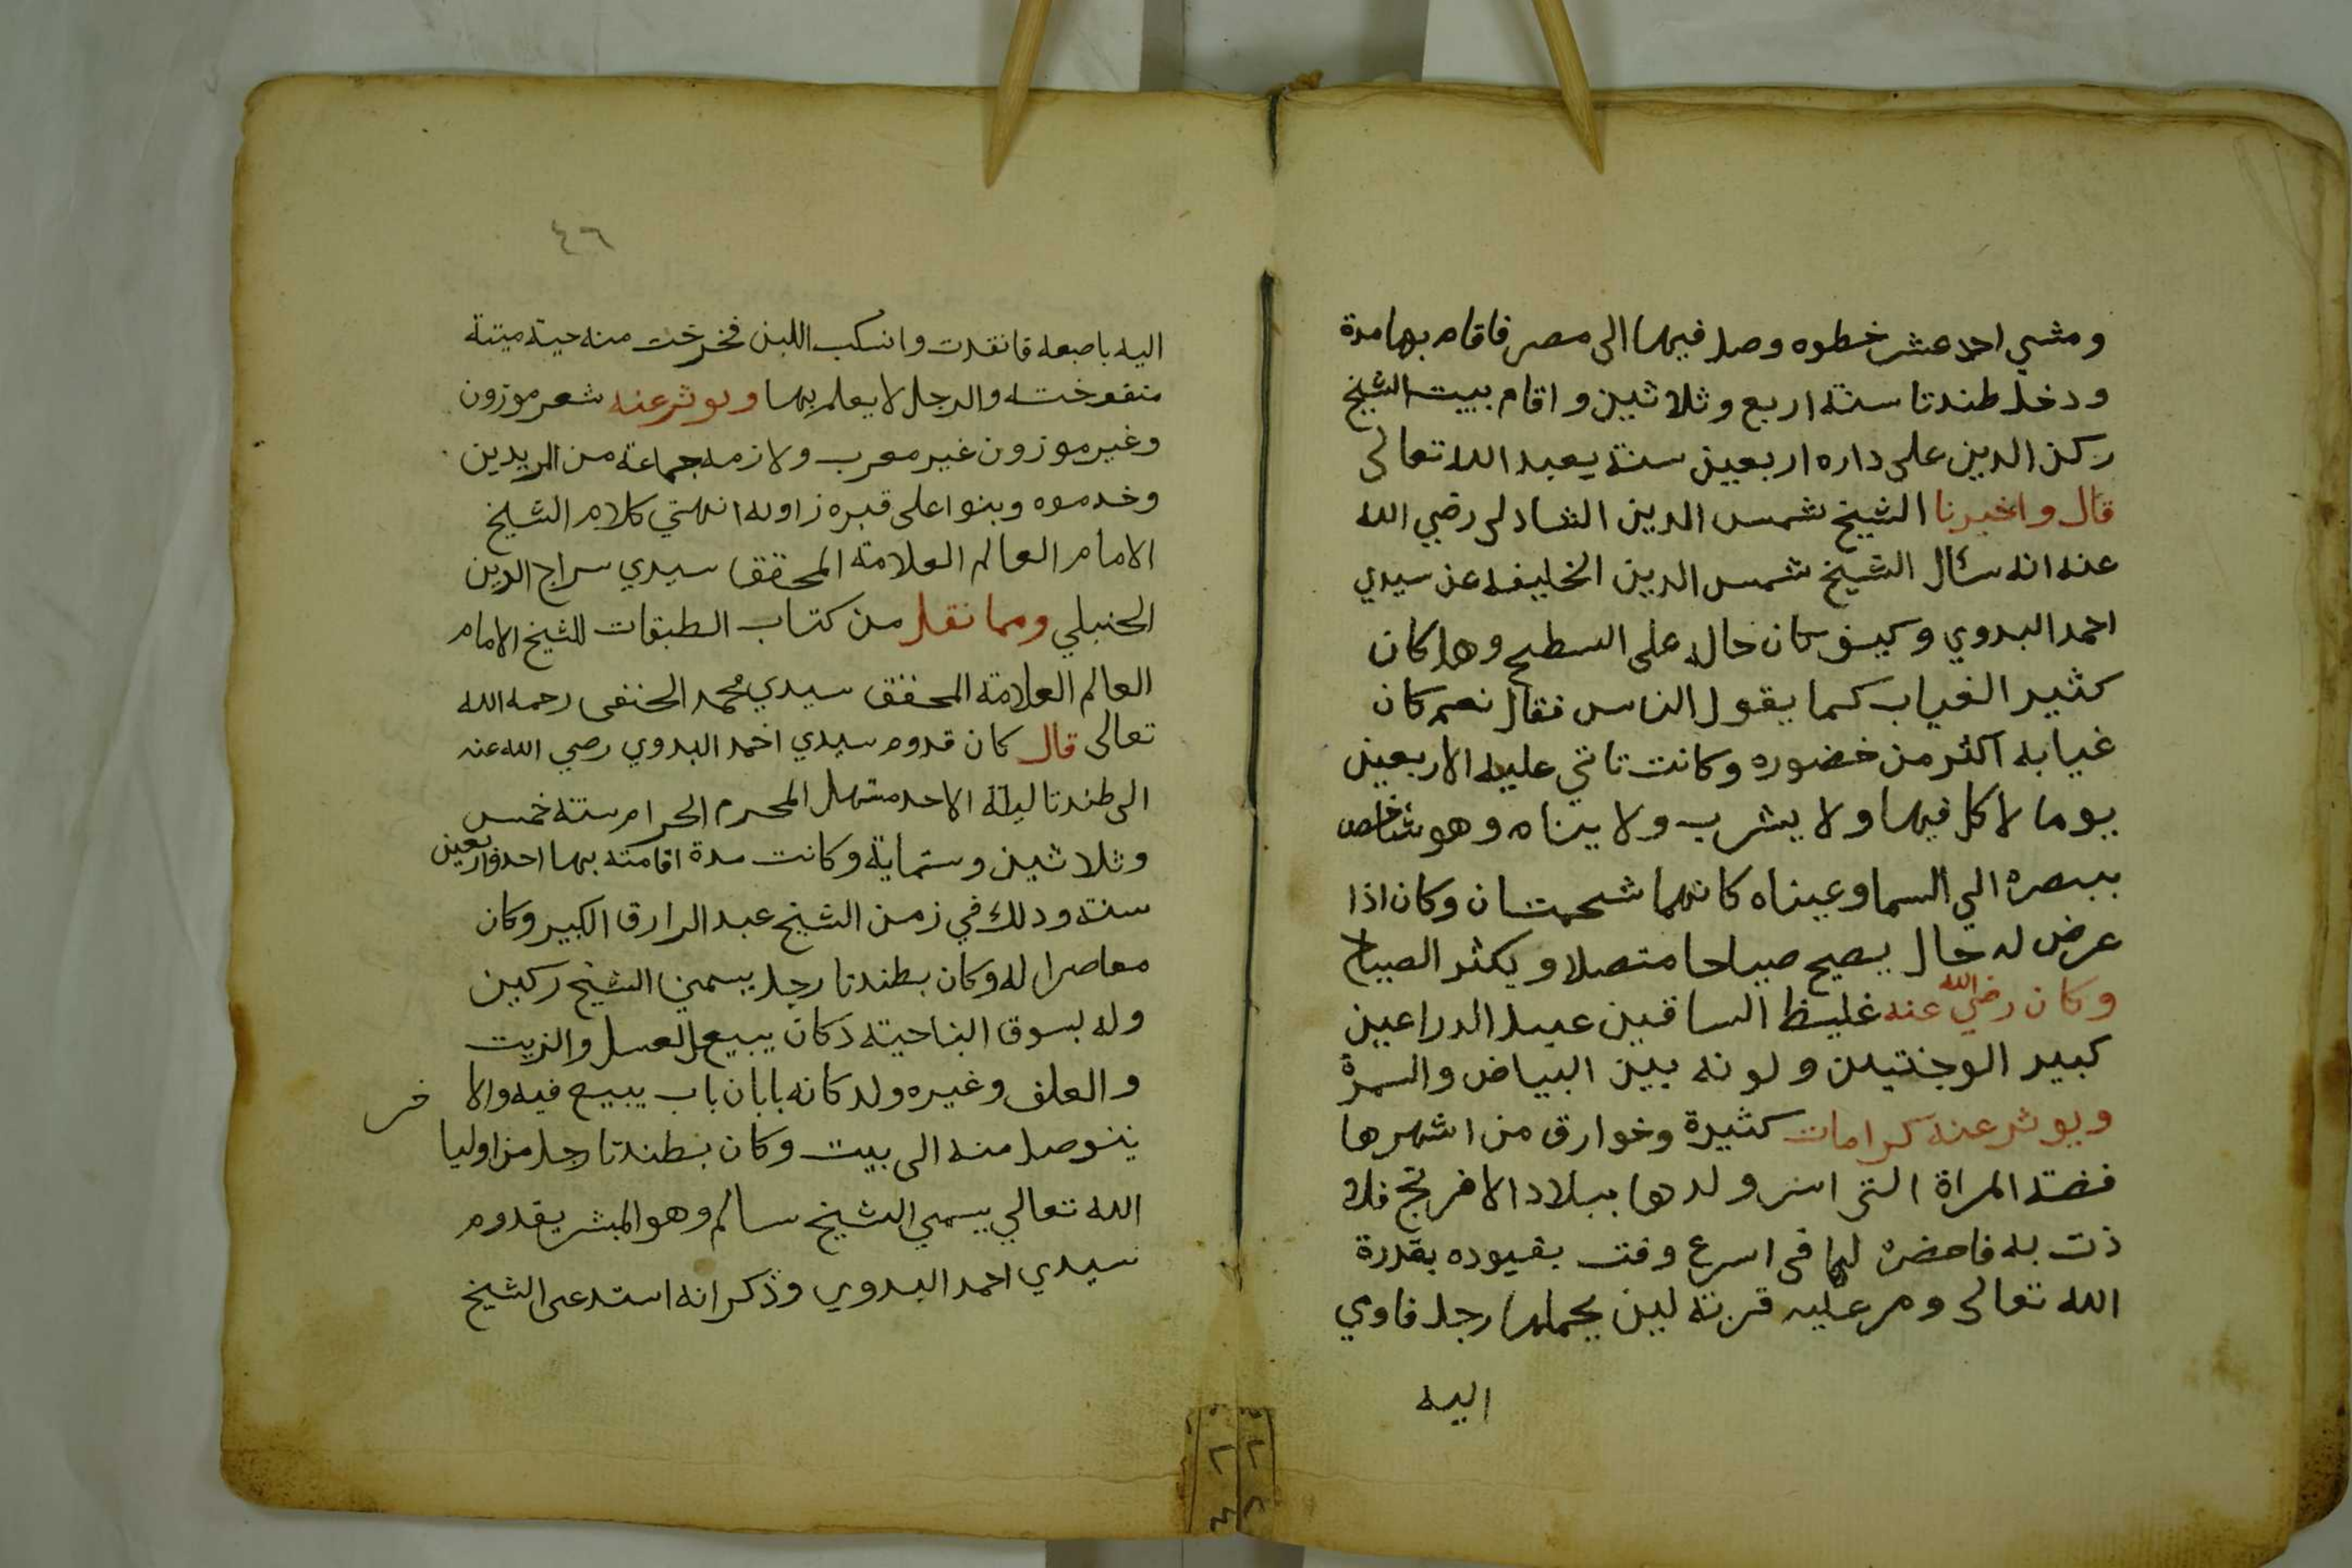 ومشي احد عشر خطوه وصل فيها الى مصر فاقام بها مدة
ودخل طندتا سنة اربع وثلاثين واقام ببيت الشيخ
ركن الدين على داره اربعين سنة يعبد الله تعالى
قال واخبرنا الشيخ شمس الدين الشادلى رضي الله
عنه انه سئال الشيخ شمس الدين الخليفه عن سيدي
احمد البدوي وكيف كان حاله على السطح وهل كان
كثير الغياب كما يقول الناس فقال نعم كان
غيابه اكثر من حضوره وكانت تاتي عليه الاربعين
يوما لاكل فيها ولا يشرب ولا ينام وهو شاخص
ببصره الي السما وعيناه كانهما شحمتان وكان اذا
عرض له حال يصيح صياحا متصلا ويكثر الصياح
وكان رضي الله عنه غليظ الساقين عبل الدراعين
كبير الوجنتين ولونه بين البياض والسمرة
ويوثر عنه كرامات كثيرة وخوارق من اشهرها
قصة المراة التى اسر ولدها ببلاد الافرنج فلا
ذت به فاحضره لها فى اسرع وقت بقيوده بقدرة
الله تعالى ومر عليه قربة لبن يحملها رجل فاوي
اليه
٤٦
اليه باصبعه فانقدت وانسكب اللبن فخرخت منه حية ميتة
منفوخت والرجل لا يعلم بها ويوثر عنه شعر موزون
وغير موزون غير معرب ولازمه جماعة من المريدين
وخدموه وبنوا على قبره زاوله انتهتي كلام الشيخ
الامام العالم العلامة المحقق سيدي سراج الدين
الحنبلي ومما نقل من كتاب الطبقات للشيخ الامام
العالم العلامة المحقق سيدي محمد الحنفى رحمه الله
تعالى قال كان قدوم سيدي احمد البدوي رضي الله عنه
الى طندتا ليلة الاحد مستهل المحرم الحرام سنة خمس
وثلاثين وستماية وكانت مدة اقامته بها احد واربعين
سنة ودلك في زمن الشيخ عبد الرازق الكبير وكان
معاصرا له وكان بطندتا رجل يسمي الشيخ ركين
وله بسوق الناحية دكان يبيع العسل والزيت
والعلف وغيره ولدكانه بابان باب يبيع فيه والاخر
يتوصل منه الى بيت وكان بطندتا رجل من اوليا
الله تعالي يسمي الشيخ سالم وهو المبشر بقدوم
سيدي احمد البدوي وذكر انه استدعى الشيخ